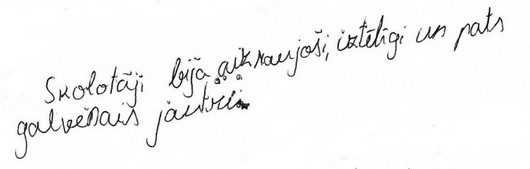 Skolotāji bija aizraujoši, iztēlīgi un pats
galvenais jautri.